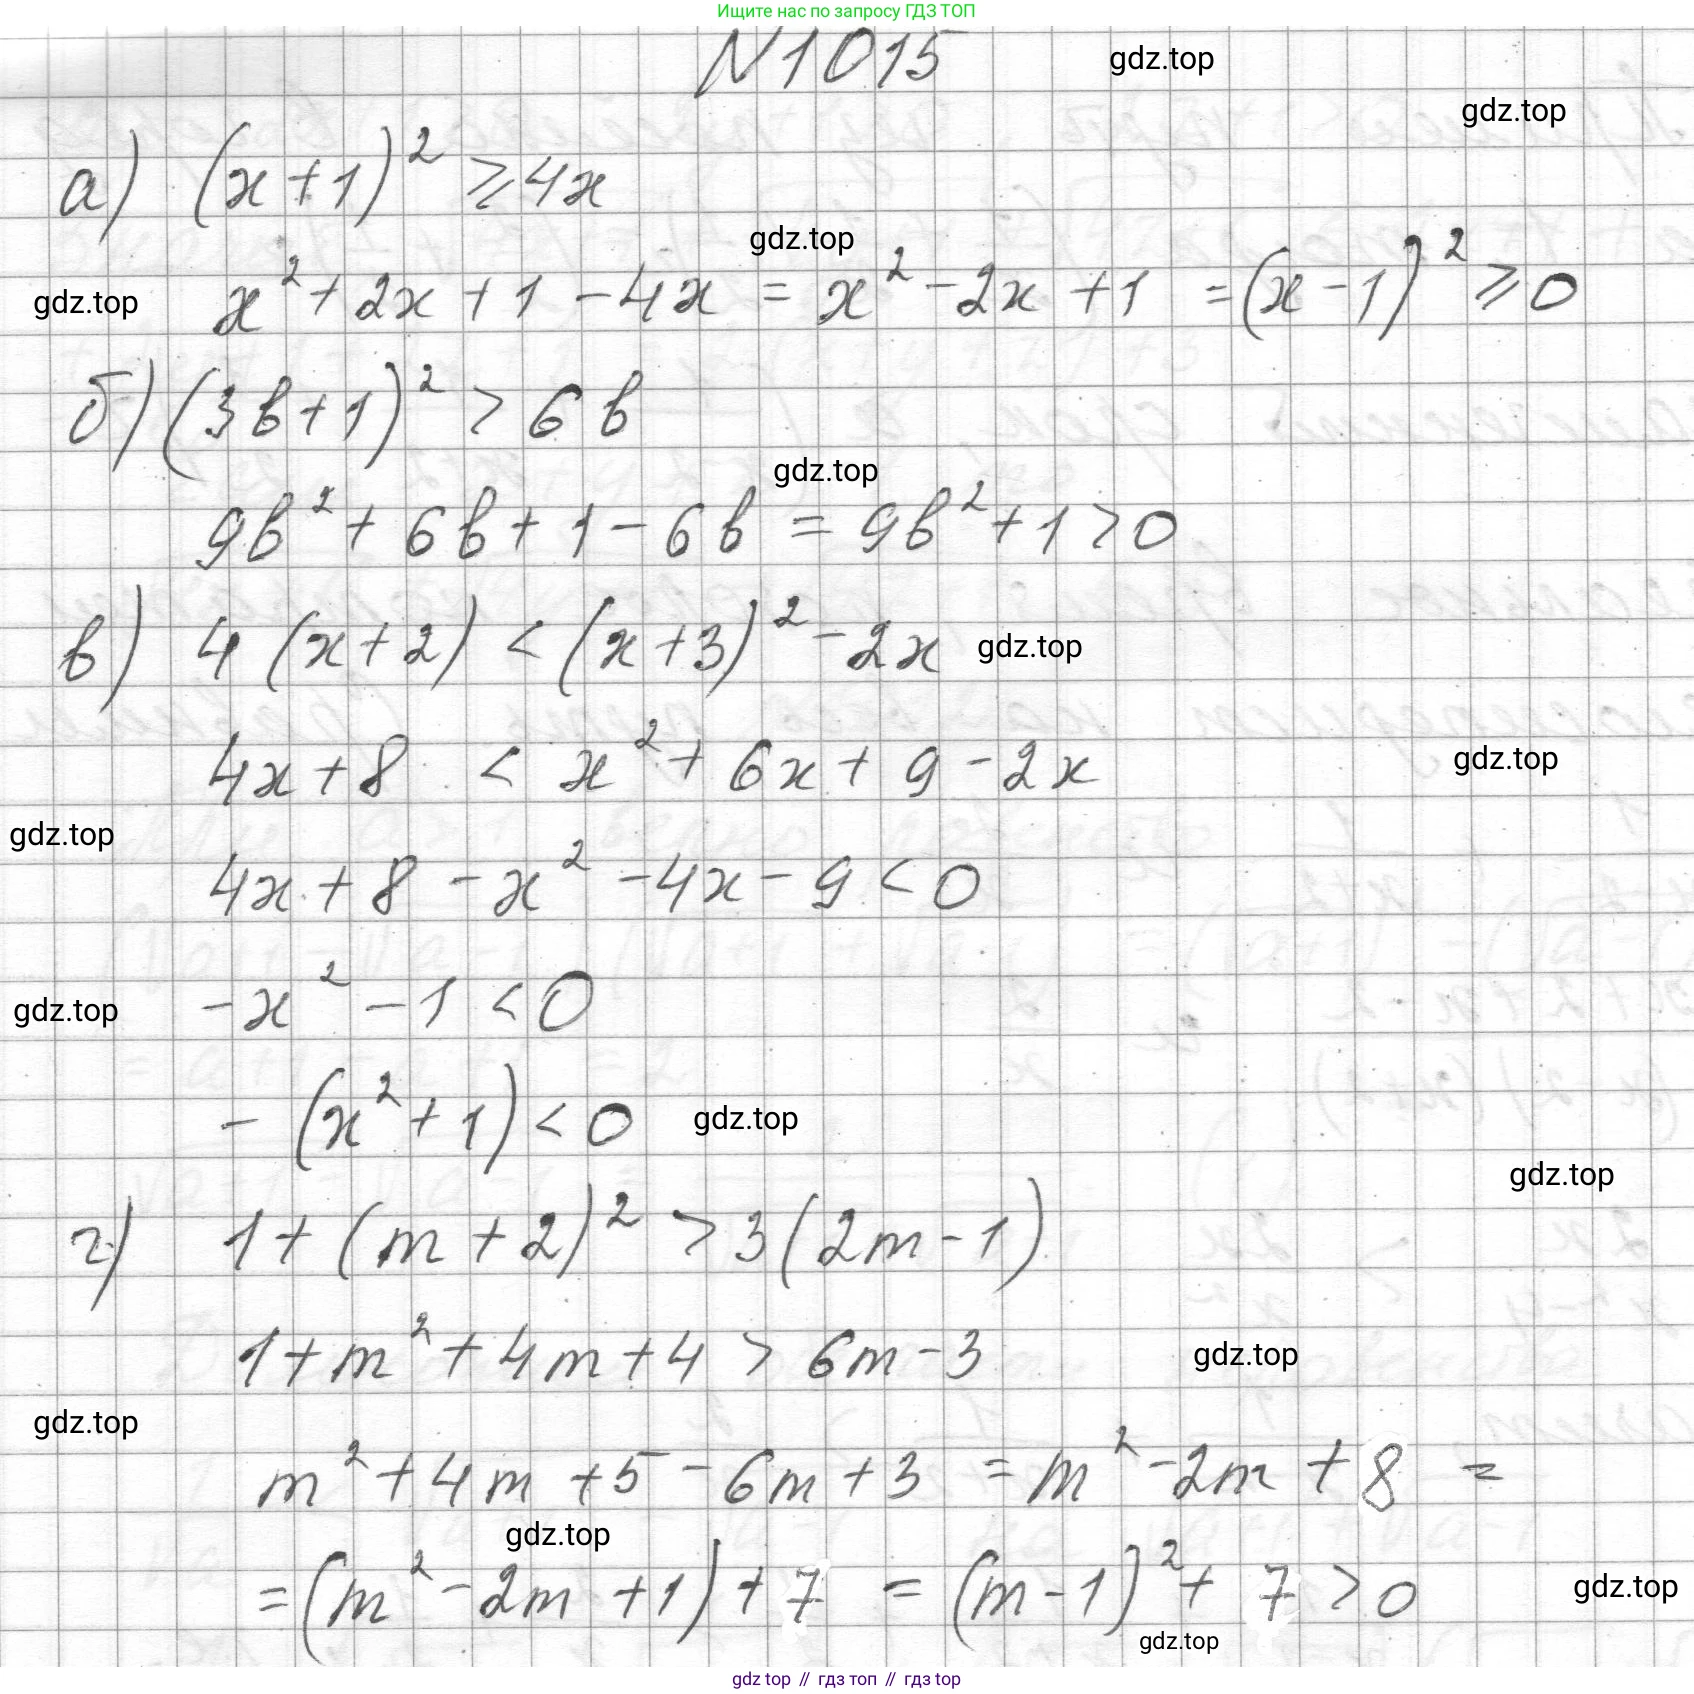 Ищите нас по запросу ГДЗ ТОП
N1015
gdz.top
gdz.top
а) (x+1)² ⩾ 4x
gdz.top
gdz.top
x² + 2x + 1 - 4x = x² - 2x + 1 = (x-1)² ⩾ 0
б) (3b+1)² > 6b
gdz.top
9b² + 6b + 1 - 6b = 9b² + 1 > 0
в) 4(x+2) < (x+3)² - 2x
gdz.top
4x + 8 < x² + 6x + 9 - 2x
gdz.top
gdz.top
4x + 8 - x² - 4x - 9 < 0
gdz.top
-x² - 1 < 0
-(x²+1) < 0
gdz.top
gdz.top
г) 1 + (m+2)² > 3(2m-1)
1 + m² + 4m + 4 > 6m - 3
gdz.top
gdz.top
m² + 4m + 5 - 6m + 3 = m² - 2m + 8 =
gdz.top
= (m² - 2m + 1) + 7 = (m-1)² + 7 > 0
gdz.top
gdz.top
gdz top // гдз топ // гдз top